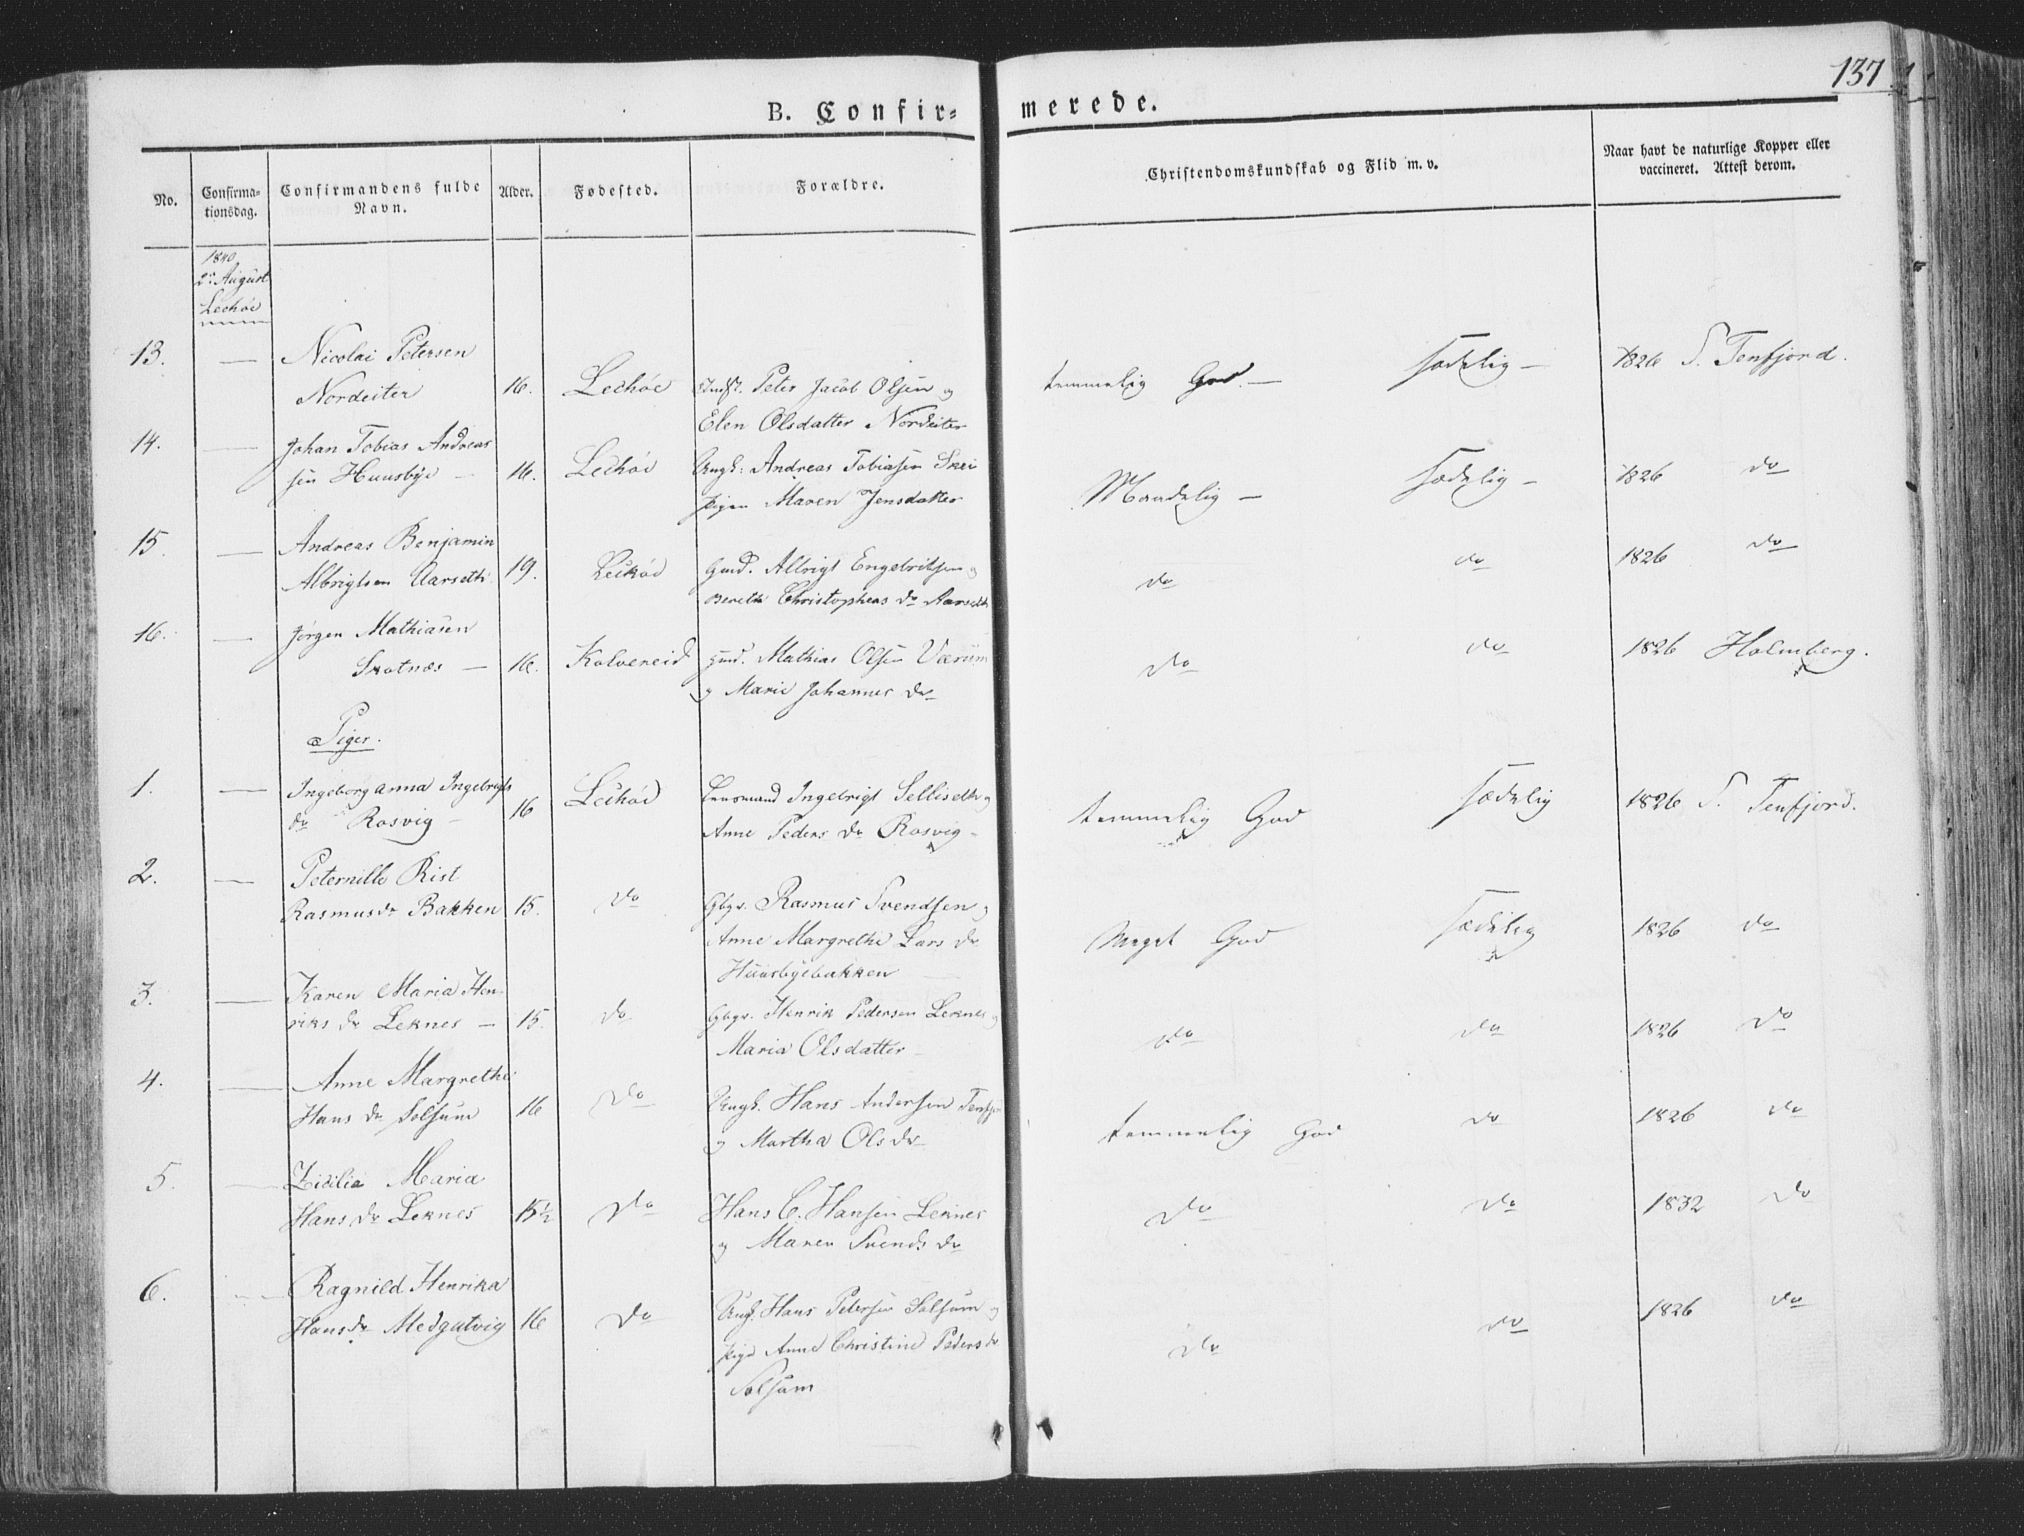 137
B. Confir=
merede.
No.
Confirma-
tionsdag.
Confirmandens fulde
Navn.
Alder.
Fødested.
Forældre.
Christendomskundskab og Flid m. v.
Naar havt de naturlige Kopper eller
vaccineret. Attest derom.
1840
2n August
Lechøe
13. — Nicolai Petersen
Nordeiter 16. Lechøe Peter Jacob Olsen og
Elen Olsdatter Nordeiter
temmelig God. — Sædelig — 1826 S. Tenfjord.
14. — Johan Tobias Andreas
sen Huusbye — 16. Lechøe Ungk: Andreas Tobiasen Skei
pigen Maren Jensdatter
Maadelig — Sædelig — 1826 do
15. — Andreas Benjamin
Albrigtsen Aarseth 19. Leckøe Gmd. Albrigt Engebritsen og
Bereth Christophers do Aarseth
do do 1826 do
16. — Jørgen Mathiasen
Skotnæs — 16. Kolvereid gmd. Mathias Olsen Værum
og Marie Johannes do
do do 1826 Holmberg.
Piger.
1. — Ingeborg Anna Ingebrigts
do Rosvig — 16 Lechøe Lensmand Ingebrigt Selliseth og
Anne Peders do Rosvig —
temmelig God Sædelig 1826 S. Tenfjord.
2. — Peternille Rist
Rasmusdr Bakken 15. do Gbgr. Rasmus Svendsen og
Anne Margrethe Lars do
Huusbyebakken
Meget God Sædelig 1826 do
3. — Karen Maria Hen-
riks do Leknes — 15. do Gbgr. Henrik Pedersen Leknes og
Maria Olsdatter —
do do 1826 do
4. — Anne Margrethe
Hans do Solsum 16 do Ungk. Hans Andersen Tenfjor
og Martha Ols do
temmelig God do 1826 do
5. — Zicilia Maria
Hans do Leknes 15½ do Hans C. Hansen Leknes
og Maren Svends do
do do 1832 do
6. — Ragnild Henrika
Hans do Medgutvig 16 do Ungk. Hans Petersen Solsum og
pige Anne Christine Peders do
Solsum
do do 1826 do